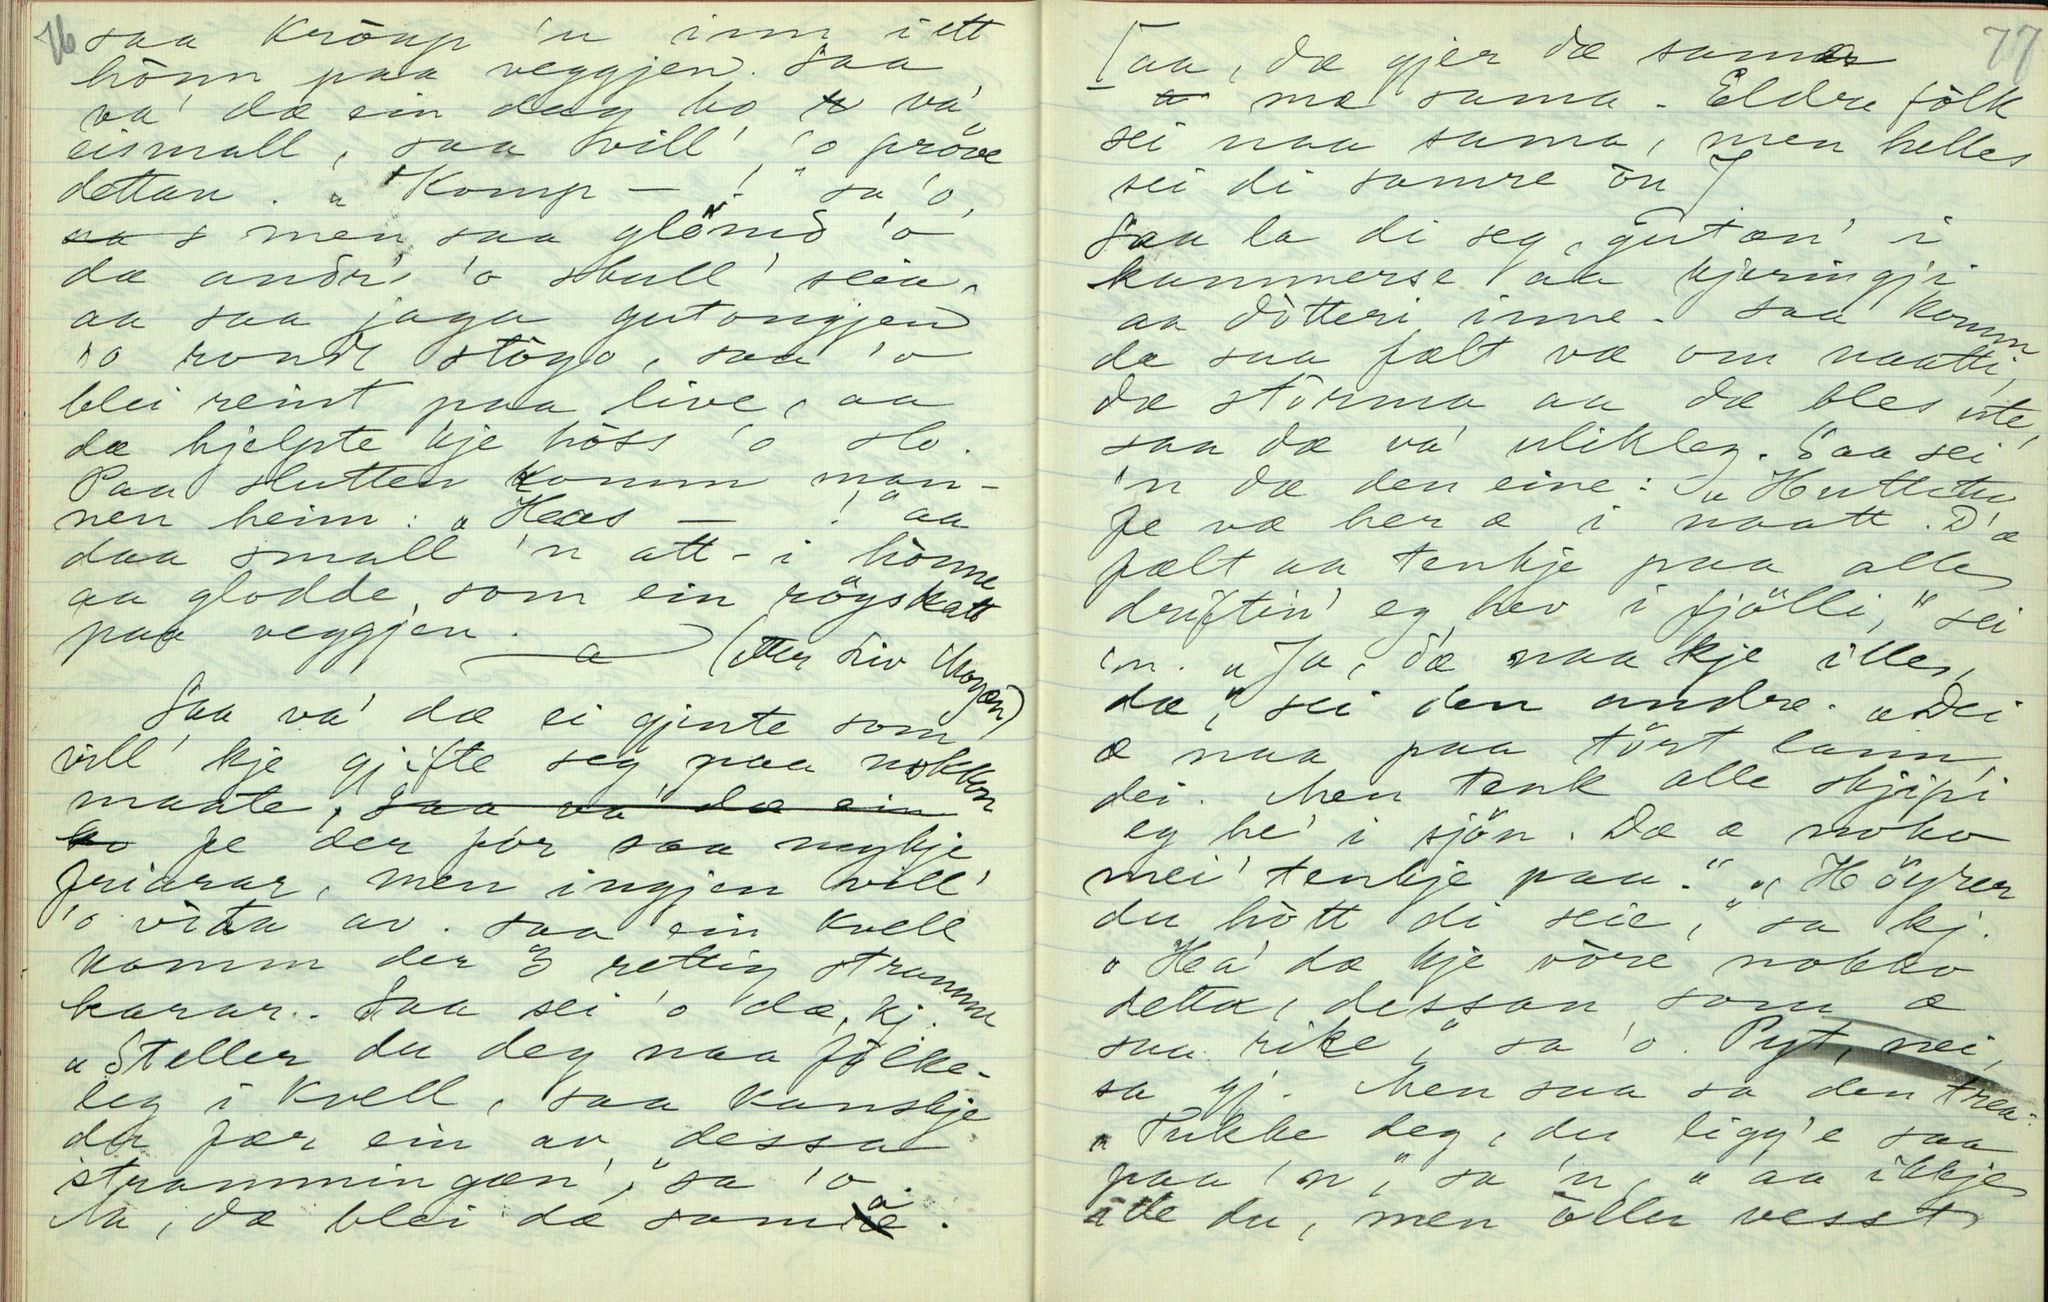 76
saa kröup 'n inn i ett
hönn paa veggjen. Saa
va' dæ ein dag ho va'
eismall, saa vill' 'o pröve
dettan. „Komp — !" sa 'o,
men saa glömd' 'o
dæ andr' 'o skull' seia,
aa saa jaga gutongjen
'o rondt stögo, saa 'o
blei reint paa live, aa
dæ hjelpte kje höss 'o slo.
Paa slutten komm man-
nen heim: „Heas — !" aa
daa small 'n att-i hönne
aa glodde som ein röyskatt
paa veggjen.
(etter Liv Mogen)
Saa va' dæ ei gjente som
vill' kje gjifte seg paa nokkon
maate, saa va' dæ ein
fe der för saa mykje
friarar, men ingjen vill'
'o vita av. Saa ein kvell
komm der 3 rettig stramme
karar. Saa sei 'o dæ, kj.
„Steller du deg naa fölke-
leg i kvell, saa kanskje
du fær ein av dessa
strammingan'," sa 'o.
Aa, dæ blei dæ sama.
77
[aa, dæ gjer dæ sama
mæ sama. Eldre fölk
sei naa sama, men helles
sei di samre ön]
Saa la di seg, gutæn' i
kammerse aa kjeringji
aa dötteri inne. Saa komm
de saa fælt væ om naatti,
dæ störma aa dæ bles ute,
saa dæ va' ulikleg. Saa sei
'n dæ den eine: „Huttetu
fe væ her æ i naatt. D'æ
fælt aa tenkje paa alle
driftin' eg hev i fjölli," sei
'n. „Ja, d'æ naa kje ille,
dæ," sei den andre. „Dei
æ naa paa tört lann,
dei. Men tenk alle skjipi
eg he' i sjön. Dæ æ noko
mei' tenkje paa." „Höyrer
du hött di seie," sa kj.
„Ha' dæ kje vöre nokko
detta, dessan som æ
saa rike," sa 'o. Pyt, nei,
sa gj. Men saa sa den trea:
„Pukke deg, du ligg'e saa
paa 'n," sa 'n, „aa ikkje
itte du, men öller vesst